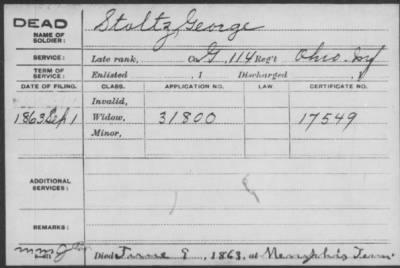 DEAD
NAME OF SOLDIER: Stoltz, George
SERVICE: Late rank, Co. G, 114 Reg't Ohio Inf
TERM OF SERVICE: Enlisted , 1 Discharged , 1
DATE OF FILING. CLASS. APPLICATION NO. LAW. CERTIFICATE NO.
Invalid,
1863 Sep 1 Widow, 31800 17549
Minor,
ADDITIONAL SERVICES:
REMARKS:
Died June , 1863, at Memphis Tenn